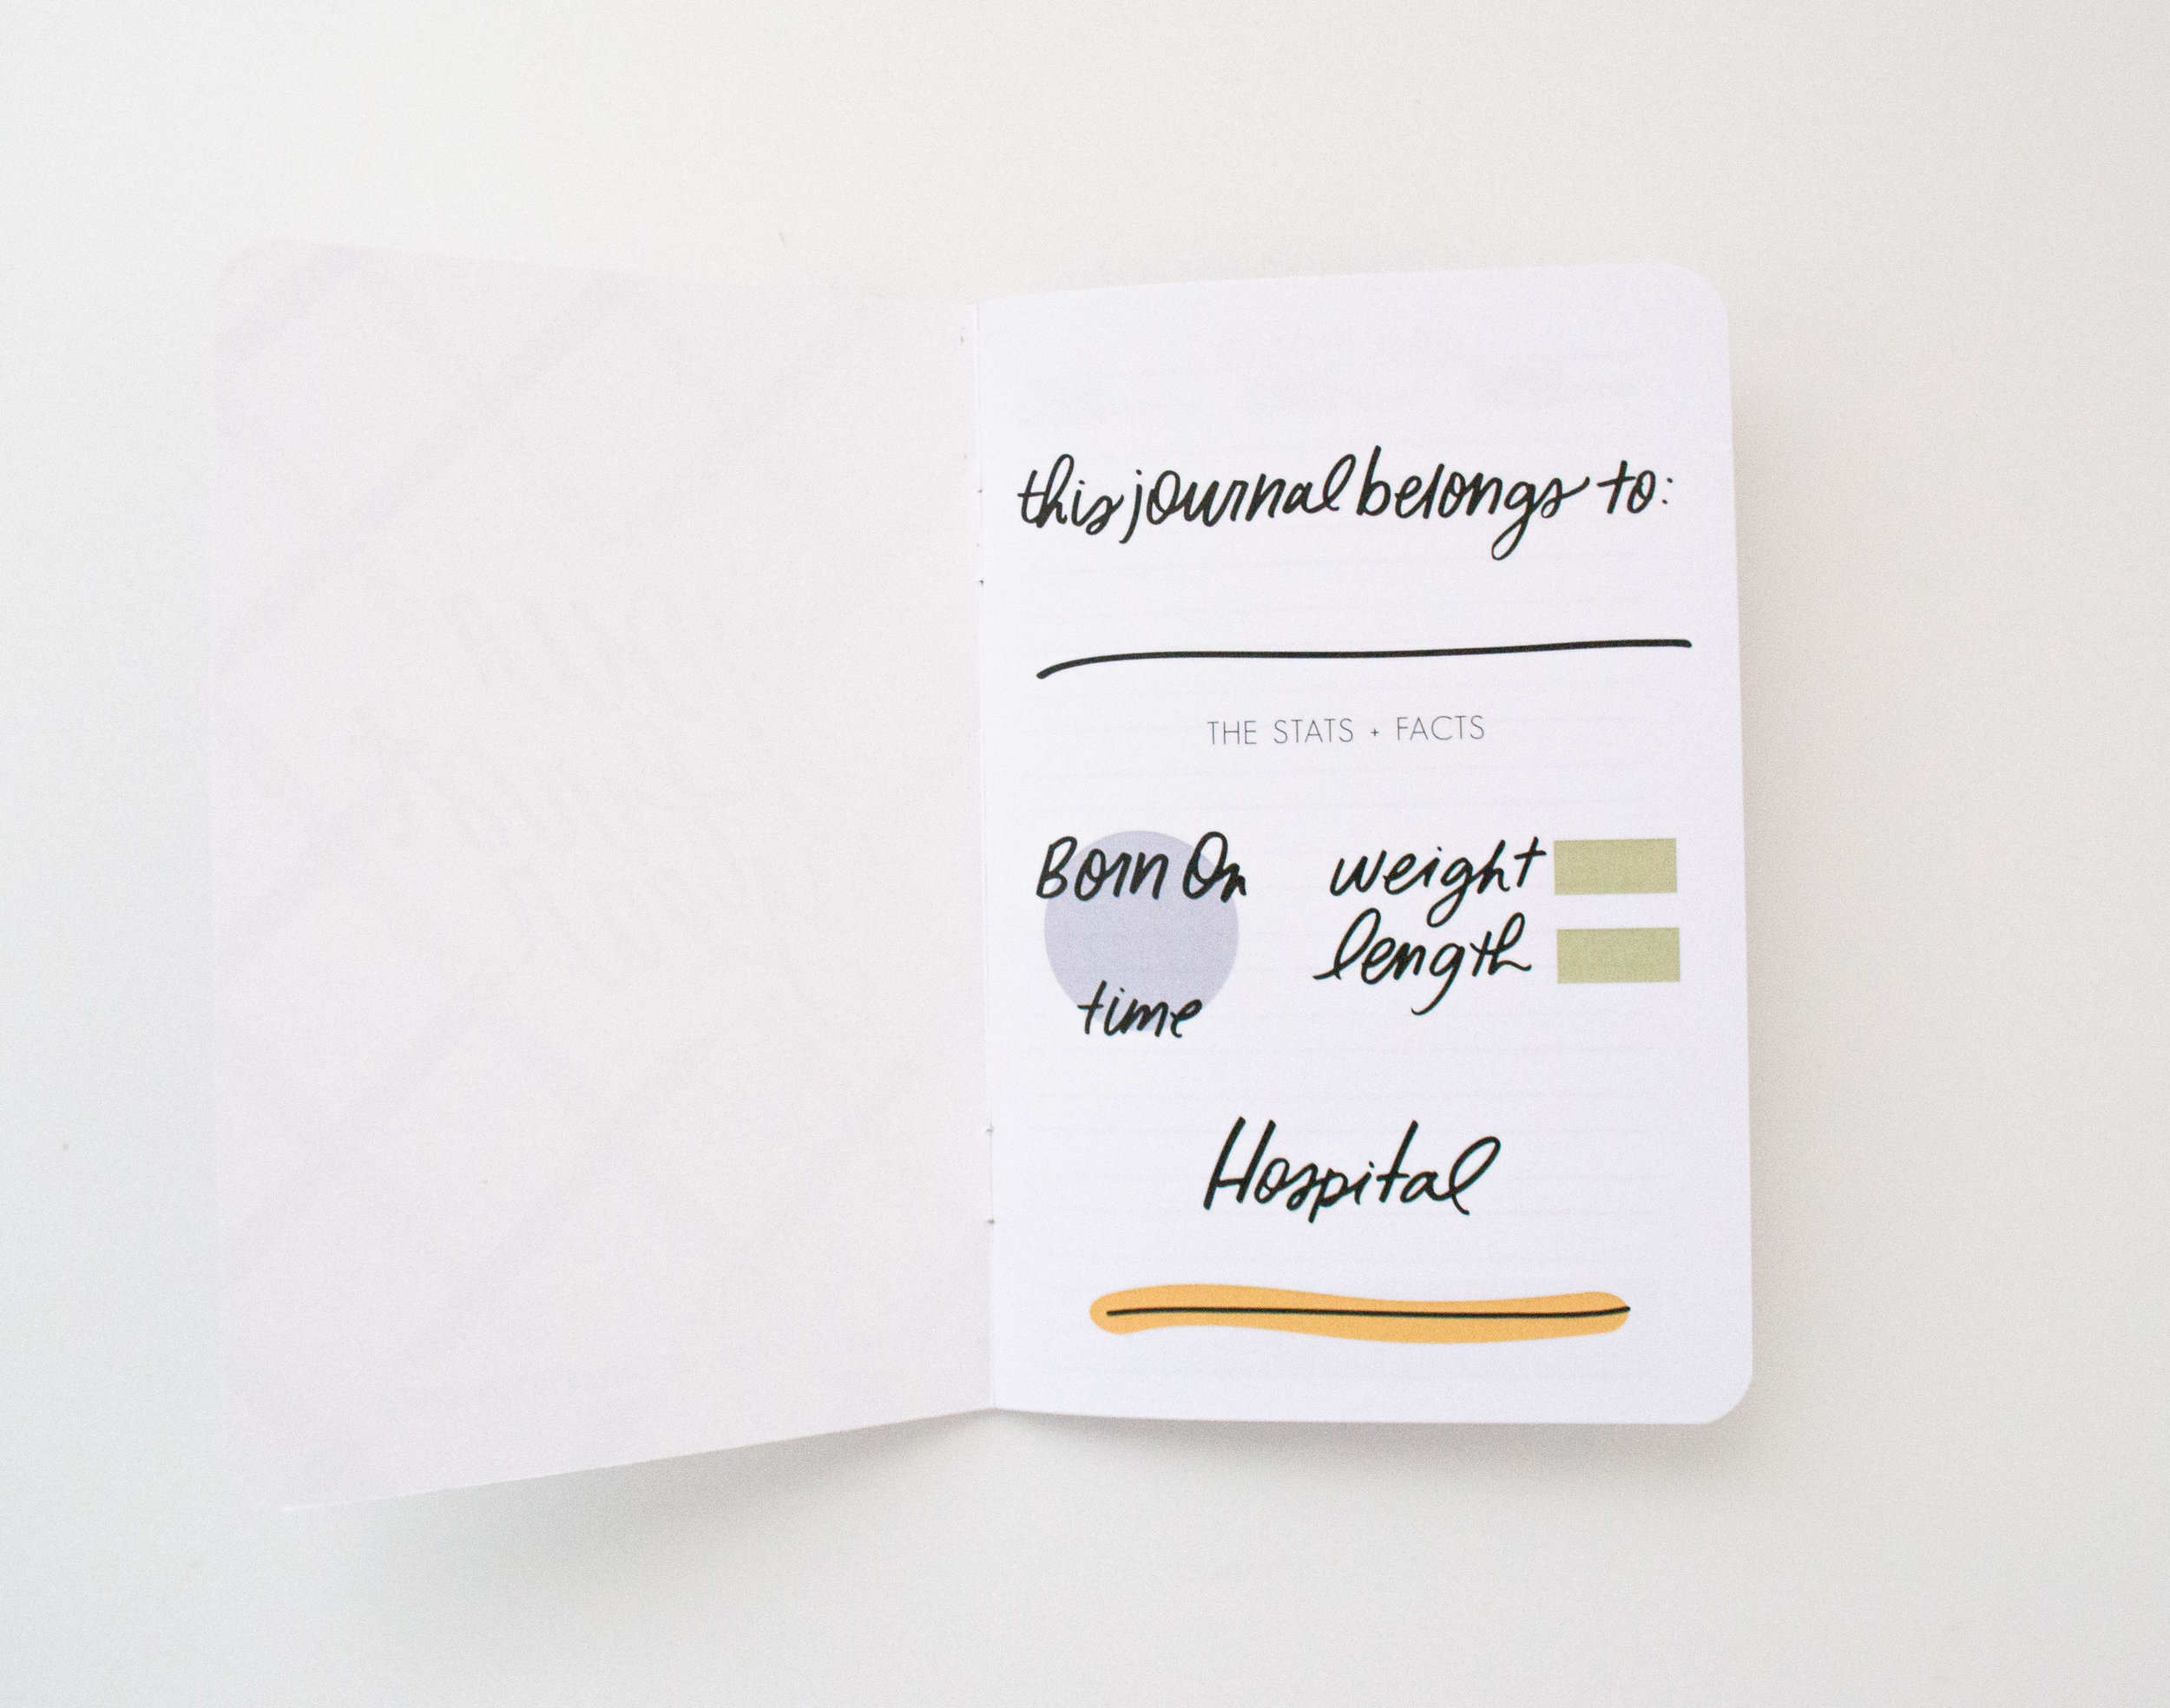 this journal belongs to:
THE STATS + FACTS
Born On
time
weight
length
Hospital